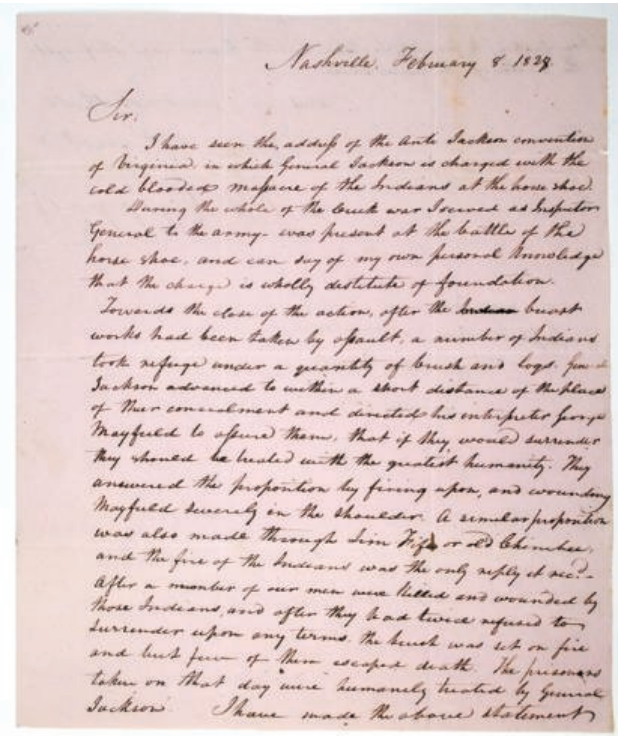 Nashville, February 8. 1828
Sir.
I have seen the address of the Anti Jackson convention
of Virginia, in which General Jackson is charged with the
cold blooded massacre of the Indians at the horse shoe.
During the whole of the Creek war I served as Inspector
General to the army - was present at the battle of the
horse shoe, and can say of my own personal knowledge
that the charge is wholly destitute of foundation.
Towards the close of the action, after the Indian breast
works had been taken by assault, a number of Indians
took refuge under a quantity of brush and logs.
Jackson advanced to within a short distance of the place
of their concealment and directed his interpreter George
Mayfield to assure them, that if they would surrender
they should be treated with the greatest humanity. They
answered the proposition by firing upon, and wounding
Mayfield severely in the shoulder. A similar proposition
was also made through Jim or old Chinnabee,
and the fire of the Indians was the only reply it recd.-
After a number of our men were killed and wounded by
those Indians, and after they had twice refused to
surrender upon any terms, the brush was set on fire
and but few of them escaped death. The prisoners
taken on that day were humanely treated by General
Jackson. I have made the above statement